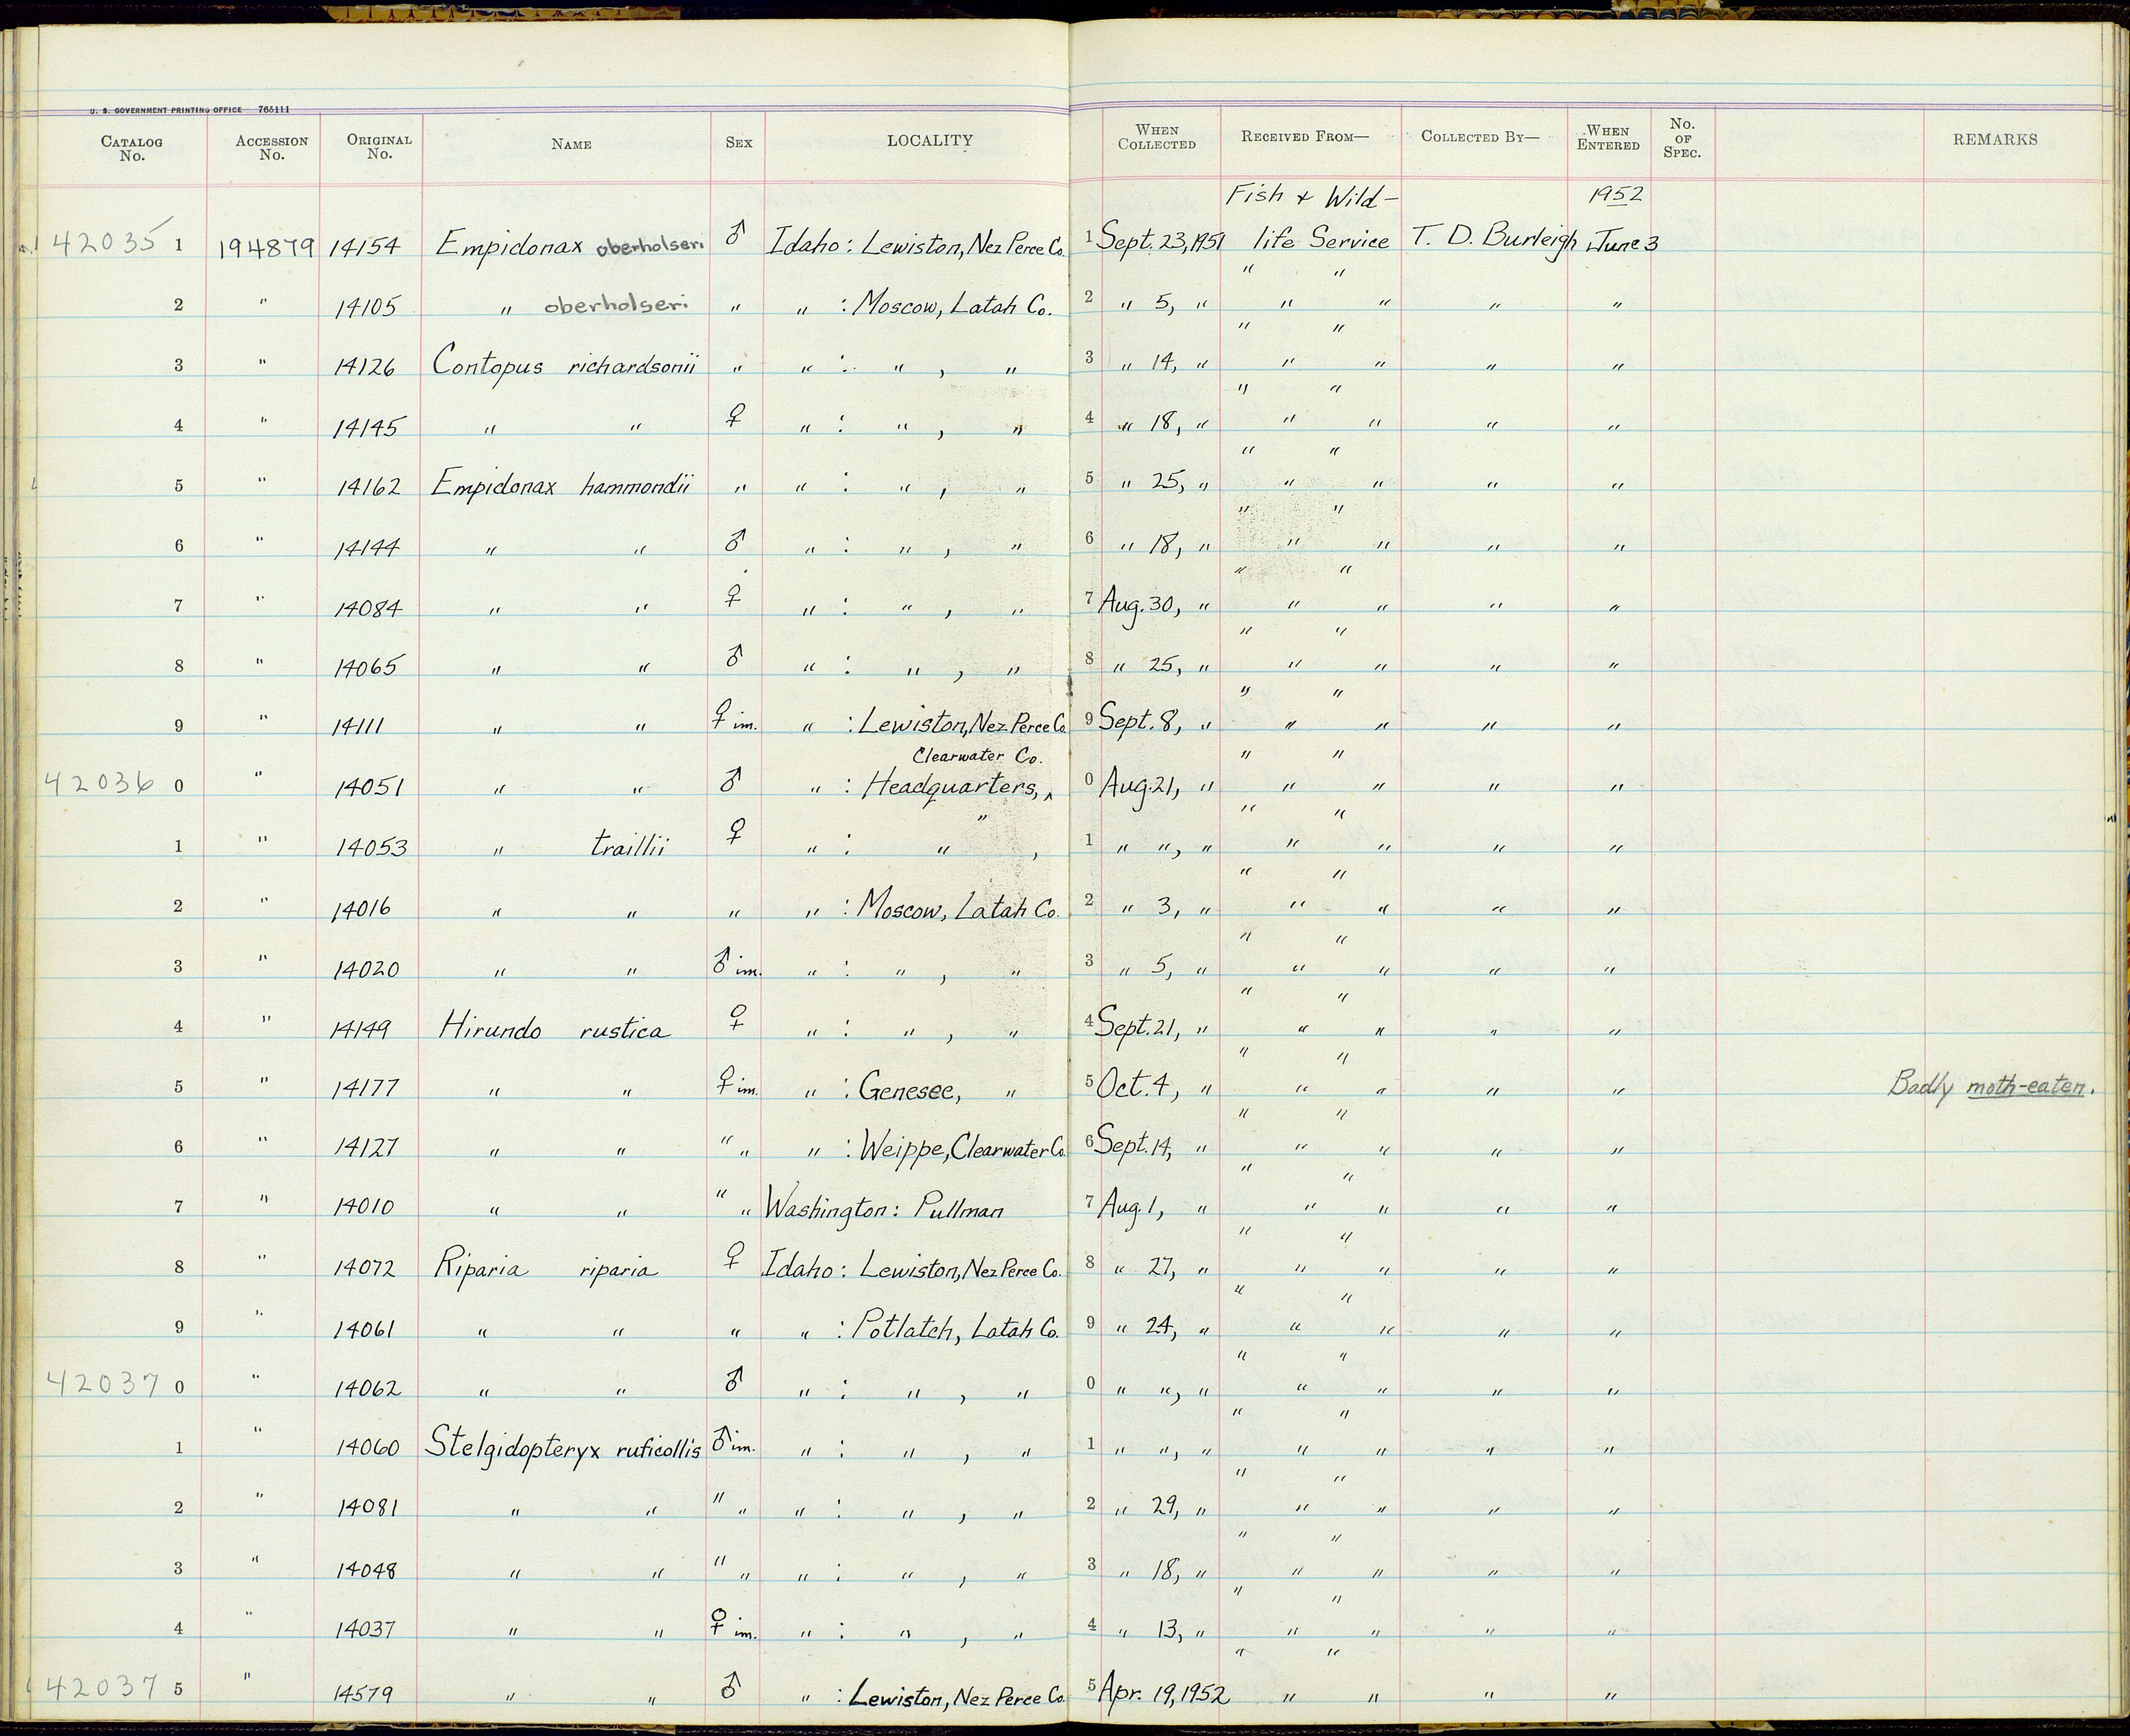 U. S. GOVERNMENT PRINTING OFFICE 765111
CATALOG No. ACCESSION No. ORIGINAL No. NAME SEX LOCALITY WHEN COLLECTED RECEIVED FROM— COLLECTED BY— WHEN ENTERED No. OF SPEC. REMARKS
Fish & Wild- 1952
42035 1 194879 14154 Empidonax oberholseri ♂ Idaho: Lewiston, Nez Perce Co. 1 Sept. 23, 1951 life Service T. D. Burleigh June 3
" "
2 " 14105 " oberholseri " " : Moscow, Latah Co. 2 " 5, " " " " "
" "
3 " 14126 Contopus richardsonii " " : " , " 3 " 14, " " " " "
" "
4 " 14145 " " ♀ " : " , " 4 " 18, " " " " "
" "
5 " 14162 Empidonax hammondii " " : " , " 5 " 25, " " " " "
" "
6 " 14144 " " ♂ " : " , " 6 " 18, " " " " "
" "
7 " 14084 " " ♀ " : " , " 7 Aug. 30, " " " " "
" "
8 " 14065 " " ♂ " : " , " 8 " 25, " " " " "
" "
9 " 14111 " " ♀ im. " : Lewiston, Nez Perce Co 9 Sept. 8, " " " " "
Clearwater Co. " "
42036 0 " 14051 " " ♂ " : Headquarters, ^ 0 Aug. 21, " " " " "
" " "
1 " 14053 " traillii ♀ " : " , 1 " ", " " " " "
" "
2 " 14016 " " " " : Moscow, Latah Co. 2 " 3, " " " " "
" "
3 " 14020 " " ♂ im. " : " , " 3 " 5, " " " " "
" "
4 " 14149 Hirundo rustica ♀ " : " , " 4 Sept. 21, " " " " "
" "
5 " 14177 " " ♀ im. " : Genesee, " 5 Oct. 4, " " " " " Badly moth-eaten.
" "
6 " 14127 " " " " " : Weippe, Clearwater Co. 6 Sept. 14, " " " " "
" "
7 " 14010 " " " " Washington: Pullman 7 Aug. 1, " " " " "
" "
8 " 14072 Riparia riparia ♀ Idaho: Lewiston, Nez Perce Co. 8 " 27, " " " " "
" "
9 " 14061 " " " " : Potlatch, Latah Co. 9 " 24, " " " " "
" "
42037 0 " 14062 " " ♂ " : " , " 0 " ", " " " " "
" "
1 " 14060 Stelgidopteryx ruficollis ♂ im. " : " , " 1 " ", " " " " "
" "
2 " 14081 " " " " " : " , " 2 " 29, " " " " "
" "
3 " 14048 " " " " " : " , " 3 " 18, " " " " "
" "
4 " 14037 " " ♀ im. " : " , " 4 " 13, " " " " "
" "
42037 5 " 14579 " " ♂ " : Lewiston, Nez Perce Co. 5 Apr. 19, 1952 " " " "